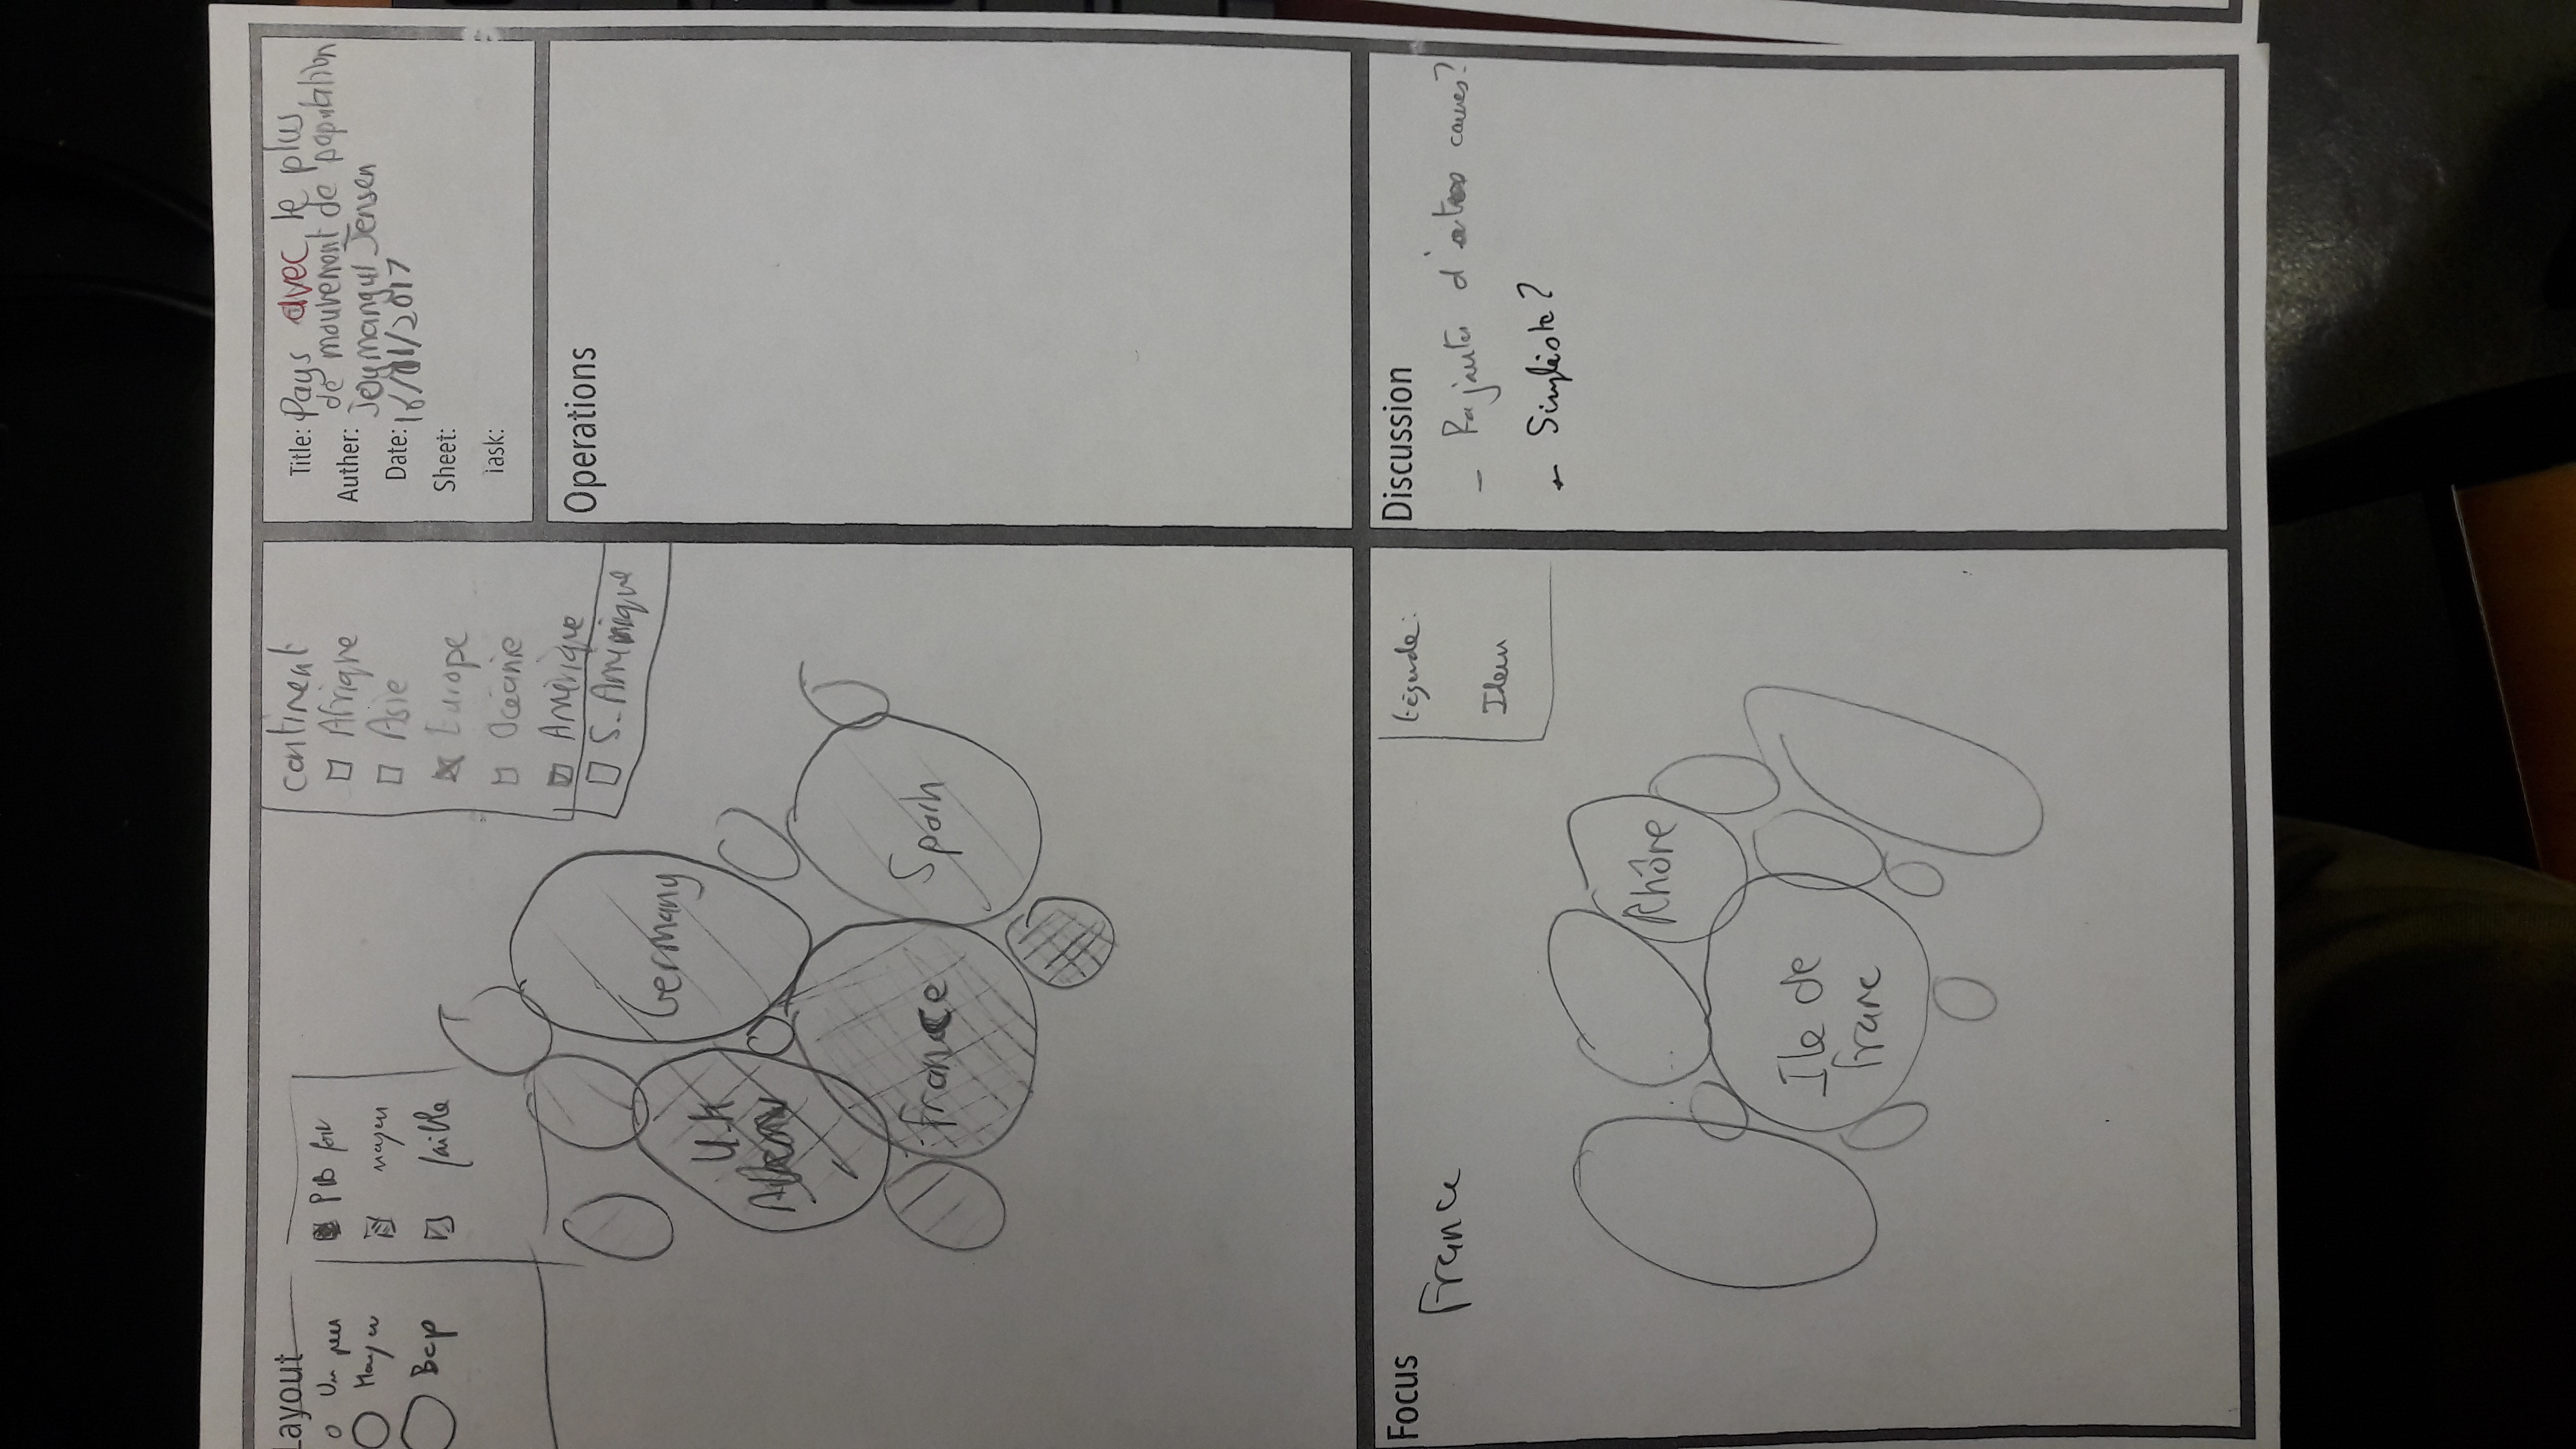 Layout
Un peu
Moyen
Bcp
PIB fort
moyen
faible
continent
Afrique
Asie
Europe
Océanie
Amérique
S. Amérique
Germany
U.K
France
Spain
Title: Pays avec le plus
de mouvement de population
Auther: Jeymangul Jensen
Date: 16/01/2017
Sheet:
Task:
Operations
Focus
France
Légende:
Idem
Rhône
Ile de
franc
Discussion
- Rajouter d'autres causes?
- Simpliste?